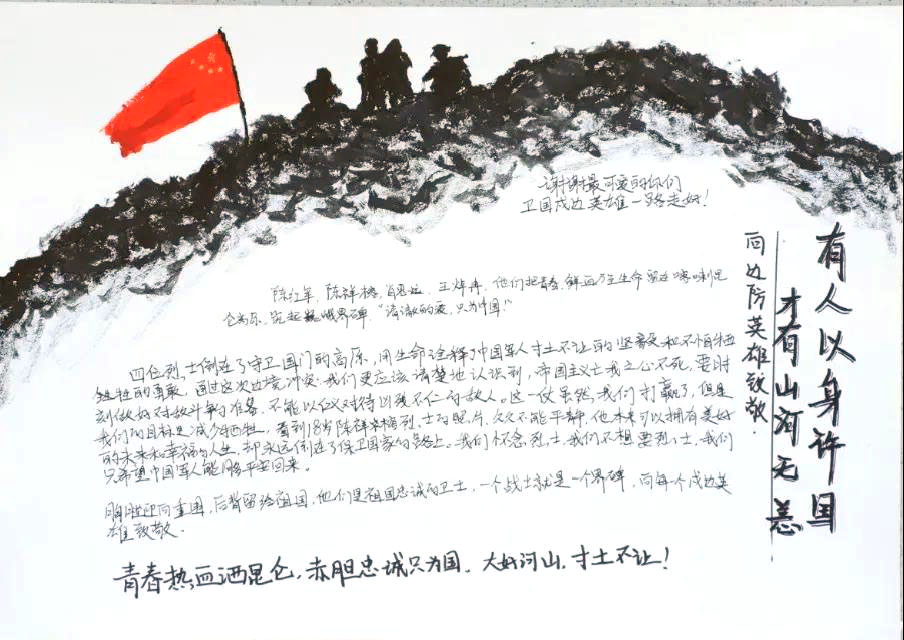 谢谢最可爱的你们
卫国戍边英雄一路走好！
有人以身许国
才有山河无恙
向边防英雄致敬.
陈红军，陈祥榕，肖思远，王焯冉，他们把青春，鲜血乃至生命留在喀喇昆
仑高原，筑起巍峨界碑，“清澈的爱，只为中国”
四位烈士倒在了守卫国门的高原，用生命诠释了中国军人寸土不让的坚毅和不怕牺
牲的勇敢，通过这次边境冲突，我们更应该清楚地认识到，帝国主义亡我之心不死，要时
刻做好对敌斗争的准备，不能以仁义对待以我不仁的敌人。这一仗虽然我们打赢了，但是
我们的目标是减少牺牲，看到18岁陈祥榕烈士的照片，久久不能平静，他本来可以拥有美好
的未来和幸福的人生，却永远倒在了保卫国家的路上。我们怀念烈士，我们不想要烈士，我们
只希望中国军人能够平安回来。
胸膛迎向重围，后背留给祖国，他们是祖国忠诚的卫士，一个战士就是一个界碑，向每个戍边英
雄致敬.
青春热血洒昆仑，赤胆忠诚只为国，大好河山，寸土不让！